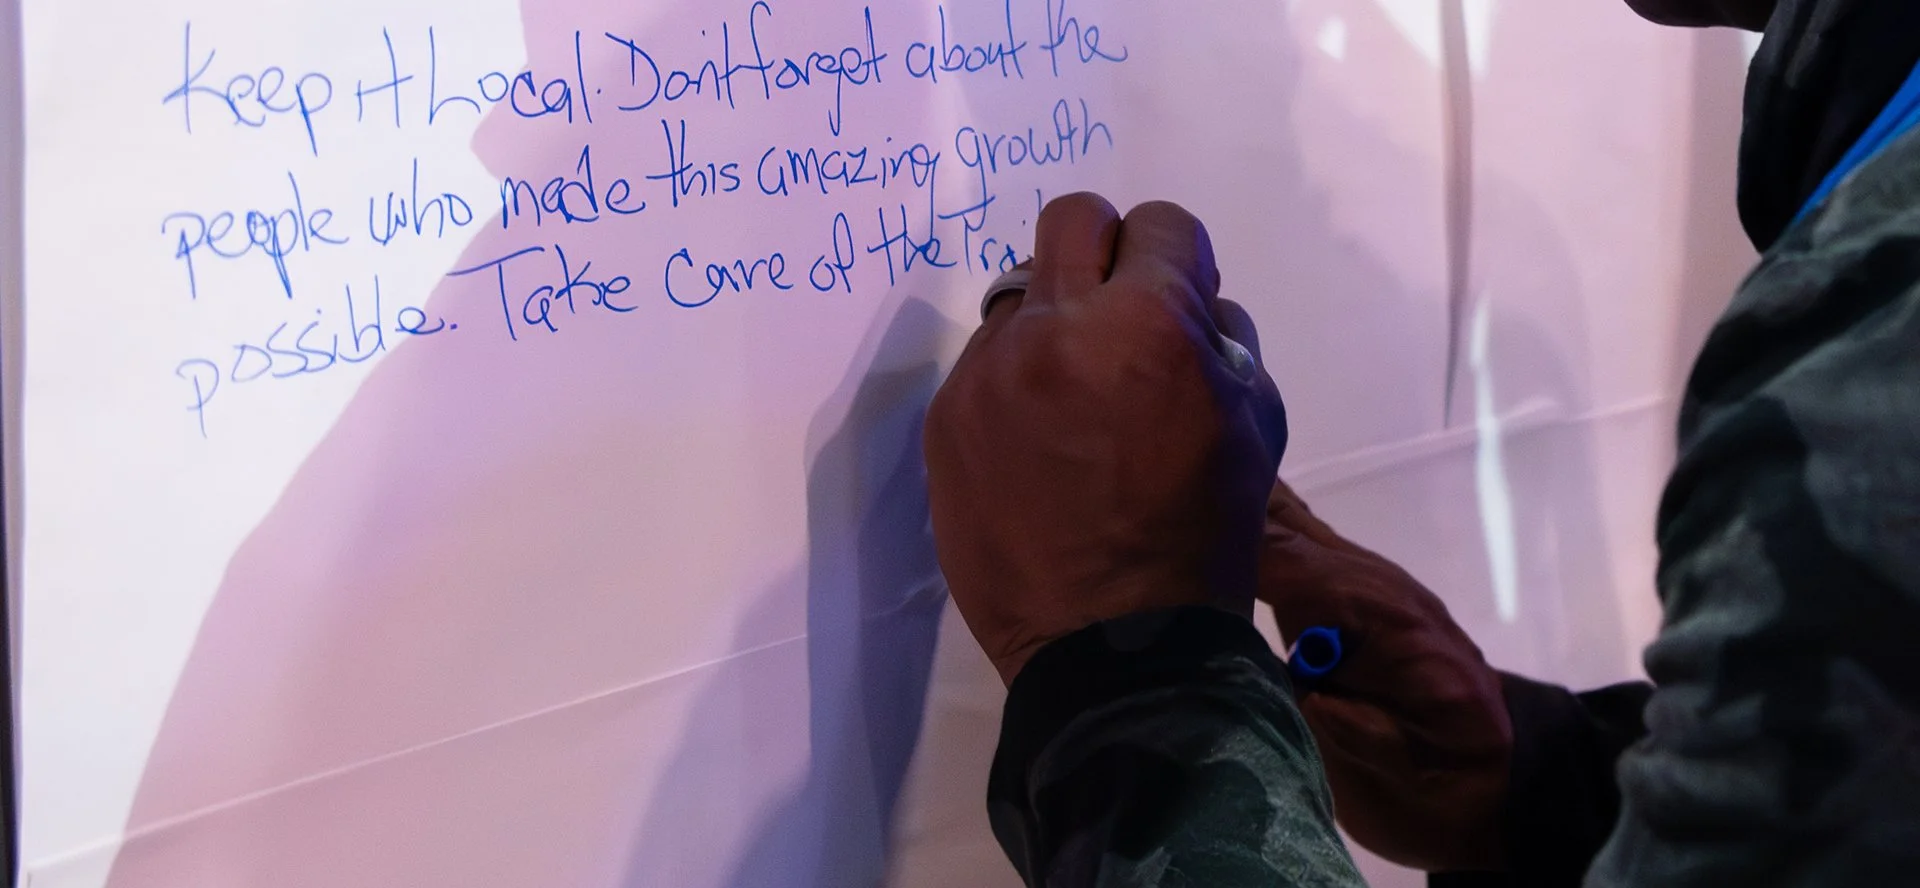 Keep it Local. Don't forget about the
people who made this amazing growth
possible. Take Care of the